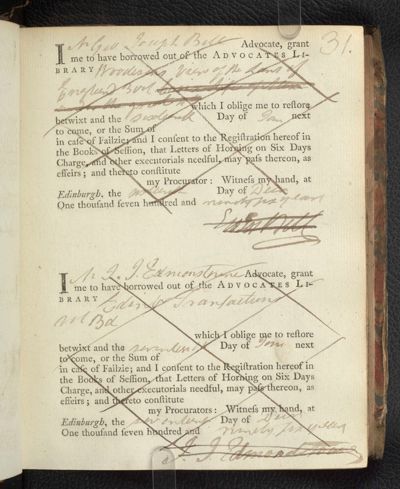 31.
I Mr Geo Joseph Bell Advocate, grant
me to have borrowed out of the ADVOCATES LI-
BRARY View of the Laws of
England
which I oblige me to restore
betwixt and the Day of Jan next
to come, or the Sum of
in case of Failzie; and I consent to the Registration hereof in
the Books of Session, that Letters of Horning on Six Days
Charge, and other executorials needful, may pass thereon, as
effeirs; and thereto constitute
my Procurator: Witness my hand, at
Edinburgh, the Day of Decr
One thousand seven hundred and ninety six years
Bell
I Mr J. J. Edmonstoune Advocate, grant
me to have borrowed out of the ADVOCATES LI-
BRARY Edinr Transactions
vol 3d
which I oblige me to restore
betwixt and the seventeenth Day of Jany next
to come, or the Sum of
in case of Failzie; and I consent to the Registration hereof in
the Books of Session, that Letters of Horning on Six Days
Charge, and other executorials needful, may pass thereon, as
effeirs; and thereto constitute
my Procurators: Witness my hand, at
Edinburgh, the seventeenth Day of Decr
One thousand seven hundred and ninety six years
J. J. Edmondstoune